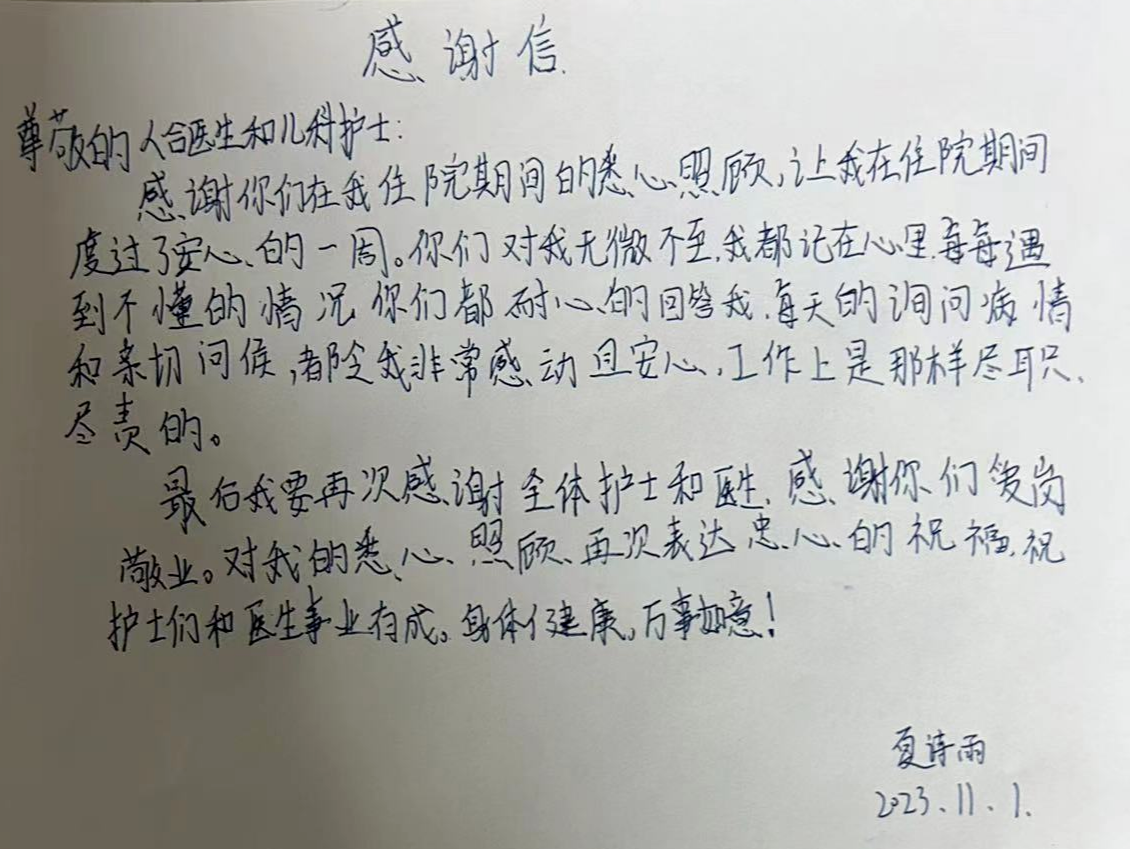 感谢信
尊敬的人合医生和儿科护士：
感谢你们在我住院期间的悉心照顾，让我在住院期间
度过了安心的一周。你们对我无微不至，我都记在心里，每每遇
到不懂的情况你们都耐心的回答我，每天的询问病情
和亲切问候，都令我非常感动且安心，工作上是那样尽职、
尽责的。
最后我要再次感谢全体护士和医生，感谢你们爱岗
敬业。对我的悉心照顾、再次表达忠心的祝福，祝
护士们和医生事业有成。身体健康，万事如意！
夏诗雨
2023.11.1.